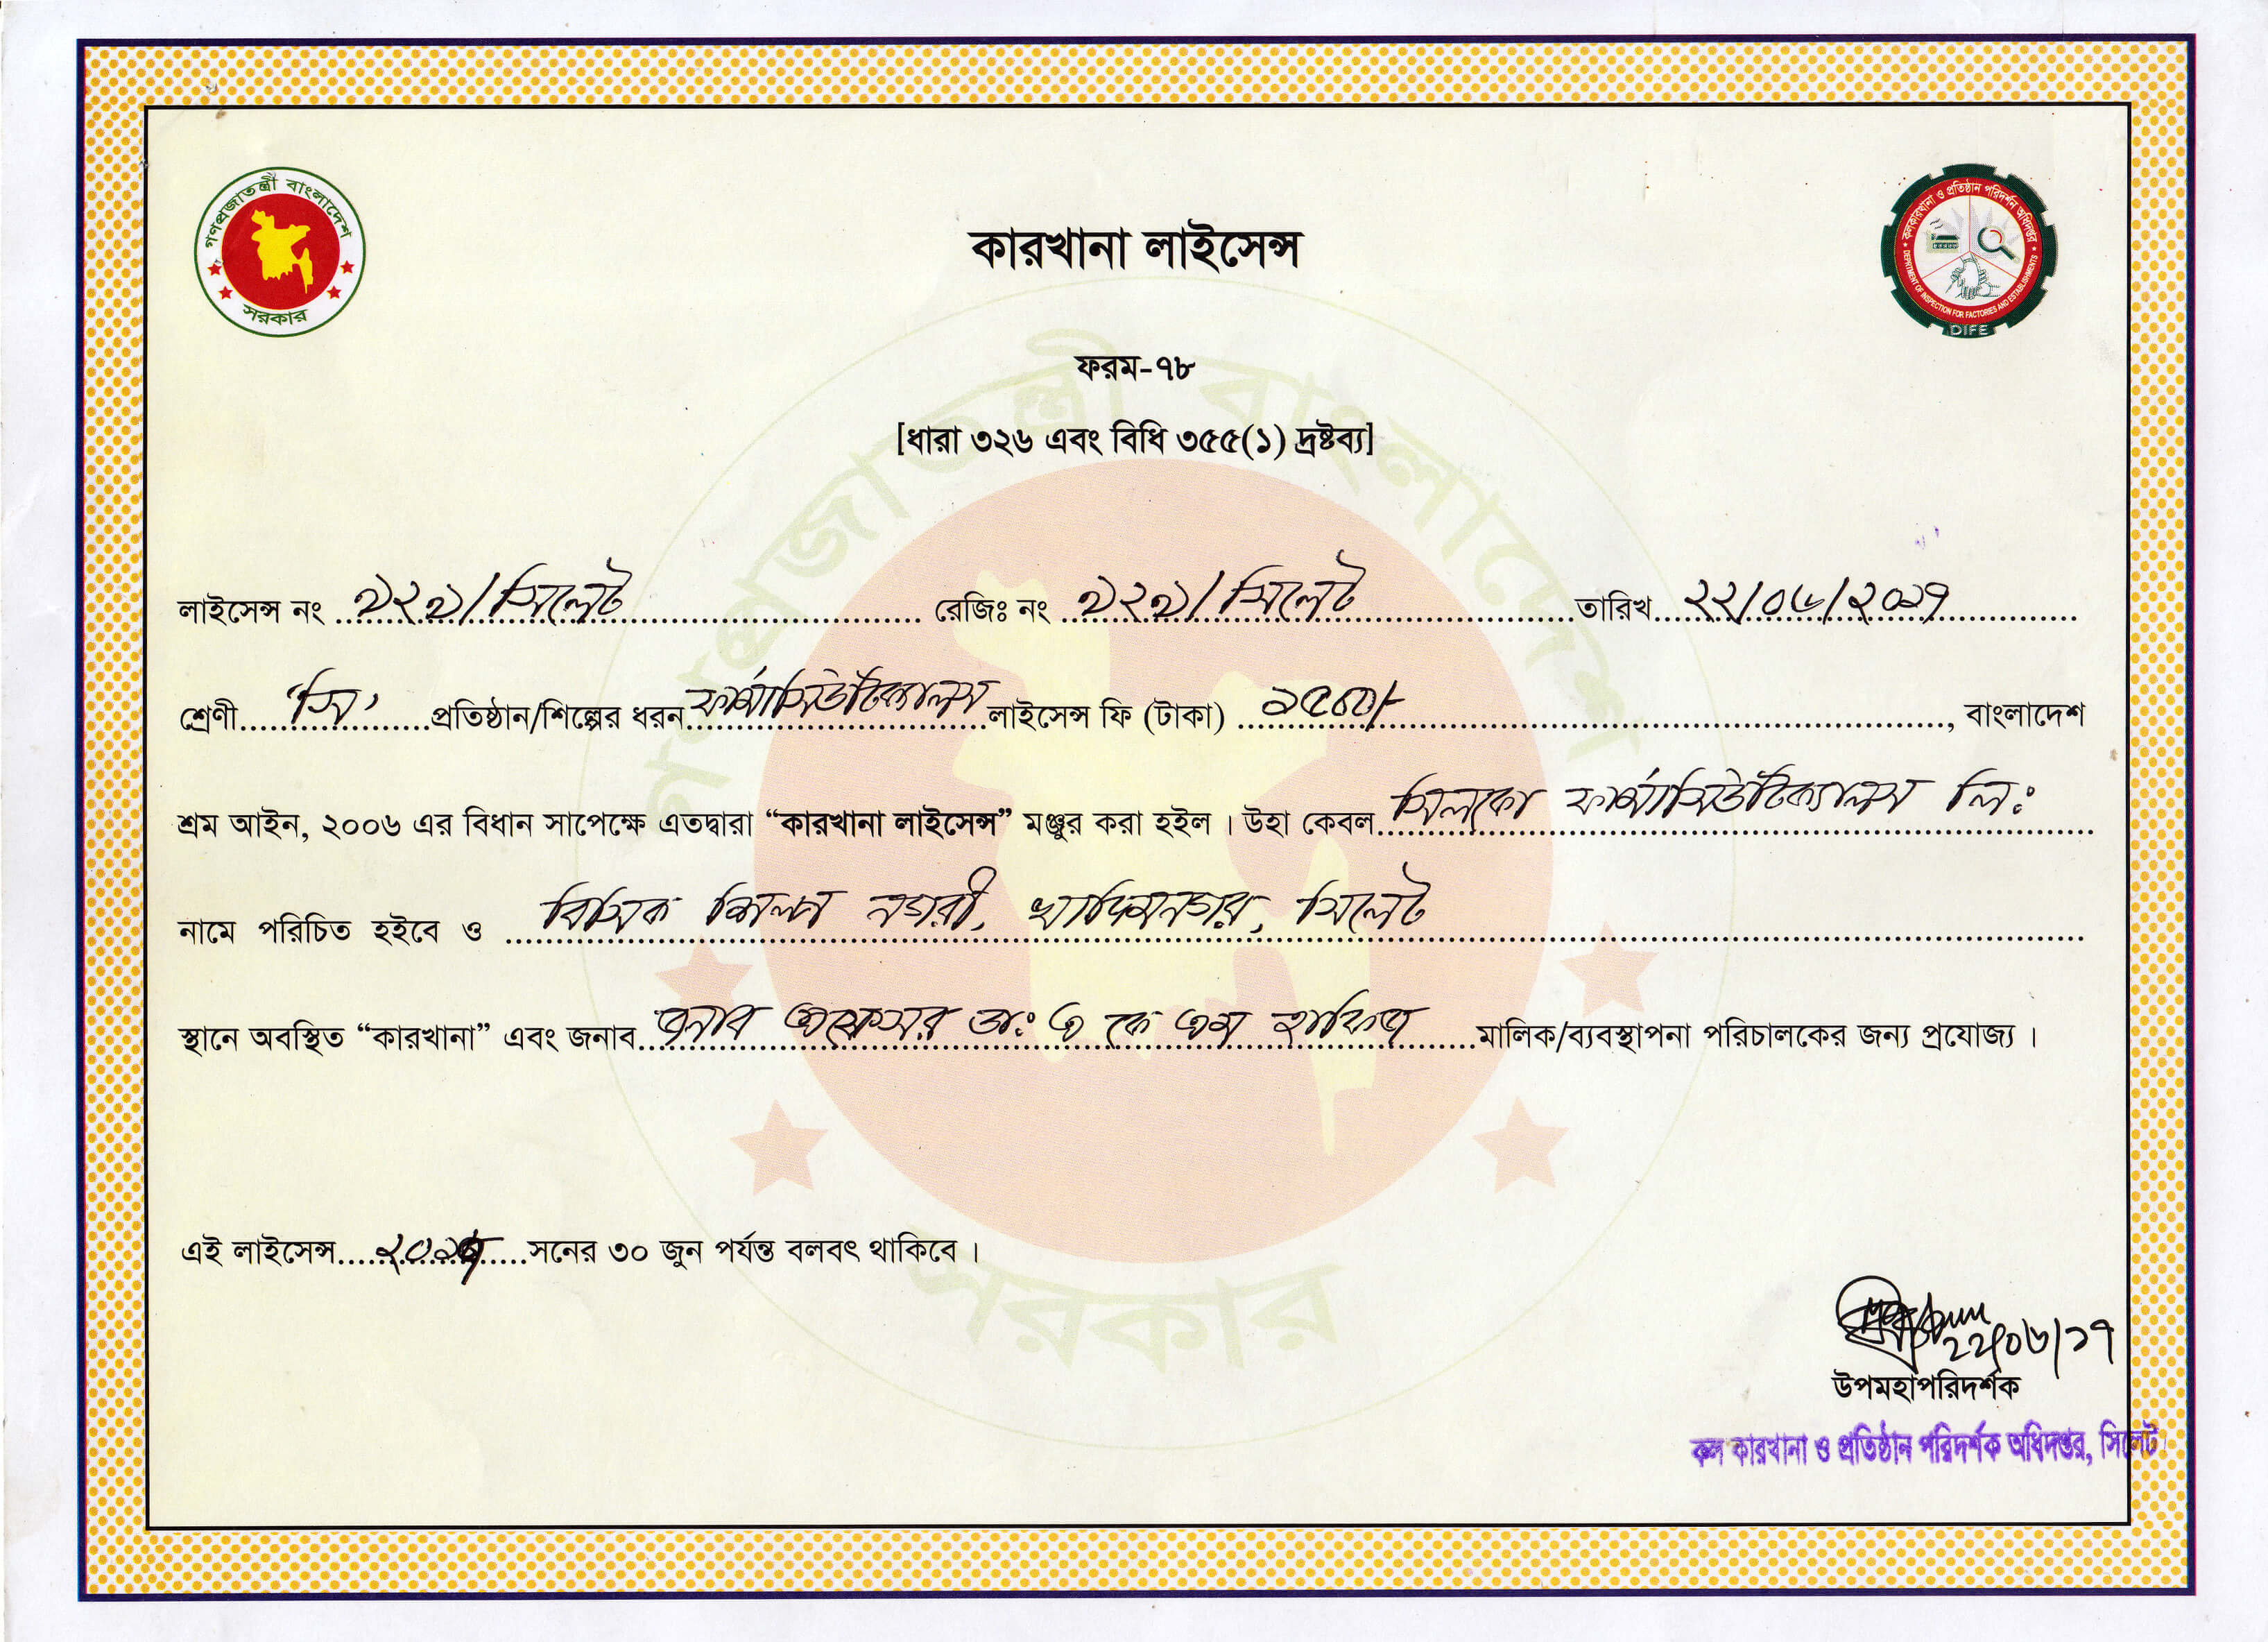 গণপ্রজাতন্ত্রী বাংলাদেশ
সরকার
কলকারখানা ও প্রতিষ্ঠান পরিদর্শন অধিদপ্তর
DEPARTMENT OF INSPECTION FOR FACTORIES AND ESTABLISHMENTS
DIFE
কারখানা লাইসেন্স
ফরম-৭৮
[ধারা ৩২৬ এবং বিধি ৩৫৫(১) দ্রষ্টব্য]
লাইসেন্স নং ১২১/সিলেট রেজিঃ নং ১২১/সিলেট তারিখ ২২/০৬/২০১৭
শ্রেণী 'সি' প্রতিষ্ঠান/শিল্পের ধরন ফার্মাসিউটিক্যালস লাইসেন্স ফি (টাকা) ১৫০০/- , বাংলাদেশ
শ্রম আইন, ২০০৬ এর বিধান সাপেক্ষে এতদ্বারা “কারখানা লাইসেন্স” মঞ্জুর করা হইল । উহা কেবল সিলকো ফার্মাসিউটিক্যালস লিঃ
নামে পরিচিত হইবে ও বিসিক শিল্প নগরী, খাদিমনগর, সিলেট
স্থানে অবস্থিত “কারখানা” এবং জনাব জনাব প্রফেসর ডাঃ এ কে এম হাফিজ মালিক/ব্যবস্থাপনা পরিচালকের জন্য প্রযোজ্য ।
এই লাইসেন্স সনের ৩০ জুন পর্যন্ত বলবৎ থাকিবে ।
২২/০৬/১৭
উপমহাপরিদর্শক
কল কারখানা ও প্রতিষ্ঠান পরিদর্শক অধিদপ্তর, সিলেট।